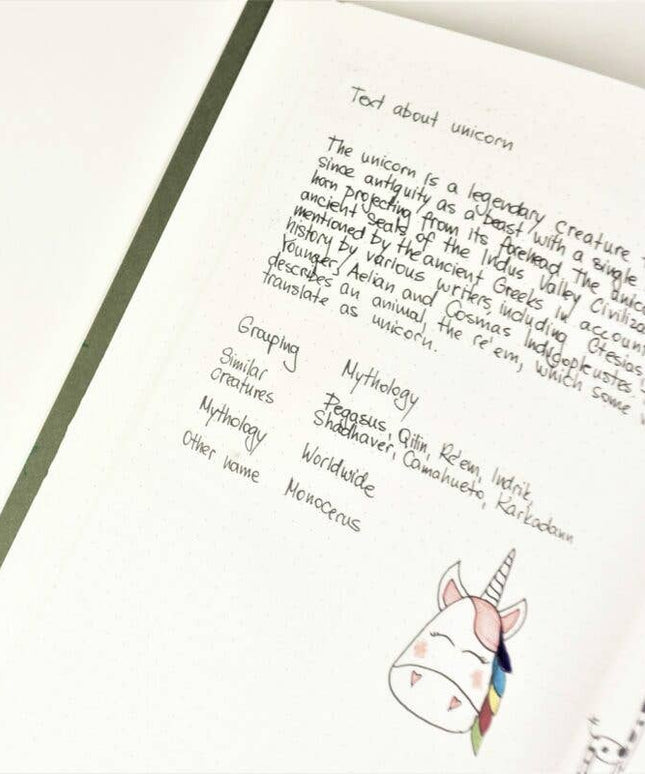 Text about unicorn
The unicorn is a legendary creature
since antiquity as a beast with a single
horn projecting from its forehead. The
ancient seals of the Indus Valley
mentioned by the ancient Greeks in
history by various writers, including Ctesias,
Younger, Aelian and Cosmas Indicopleustes.
describes an animal, the re'em, which some
translate as unicorn.
Grouping Mythology
Similar
creatures Pegasus, Qilin, Re'em, Indrik,
Shadhavar, Camahueto, Karkadann
Mythology Worldwide
Other name Monocerus